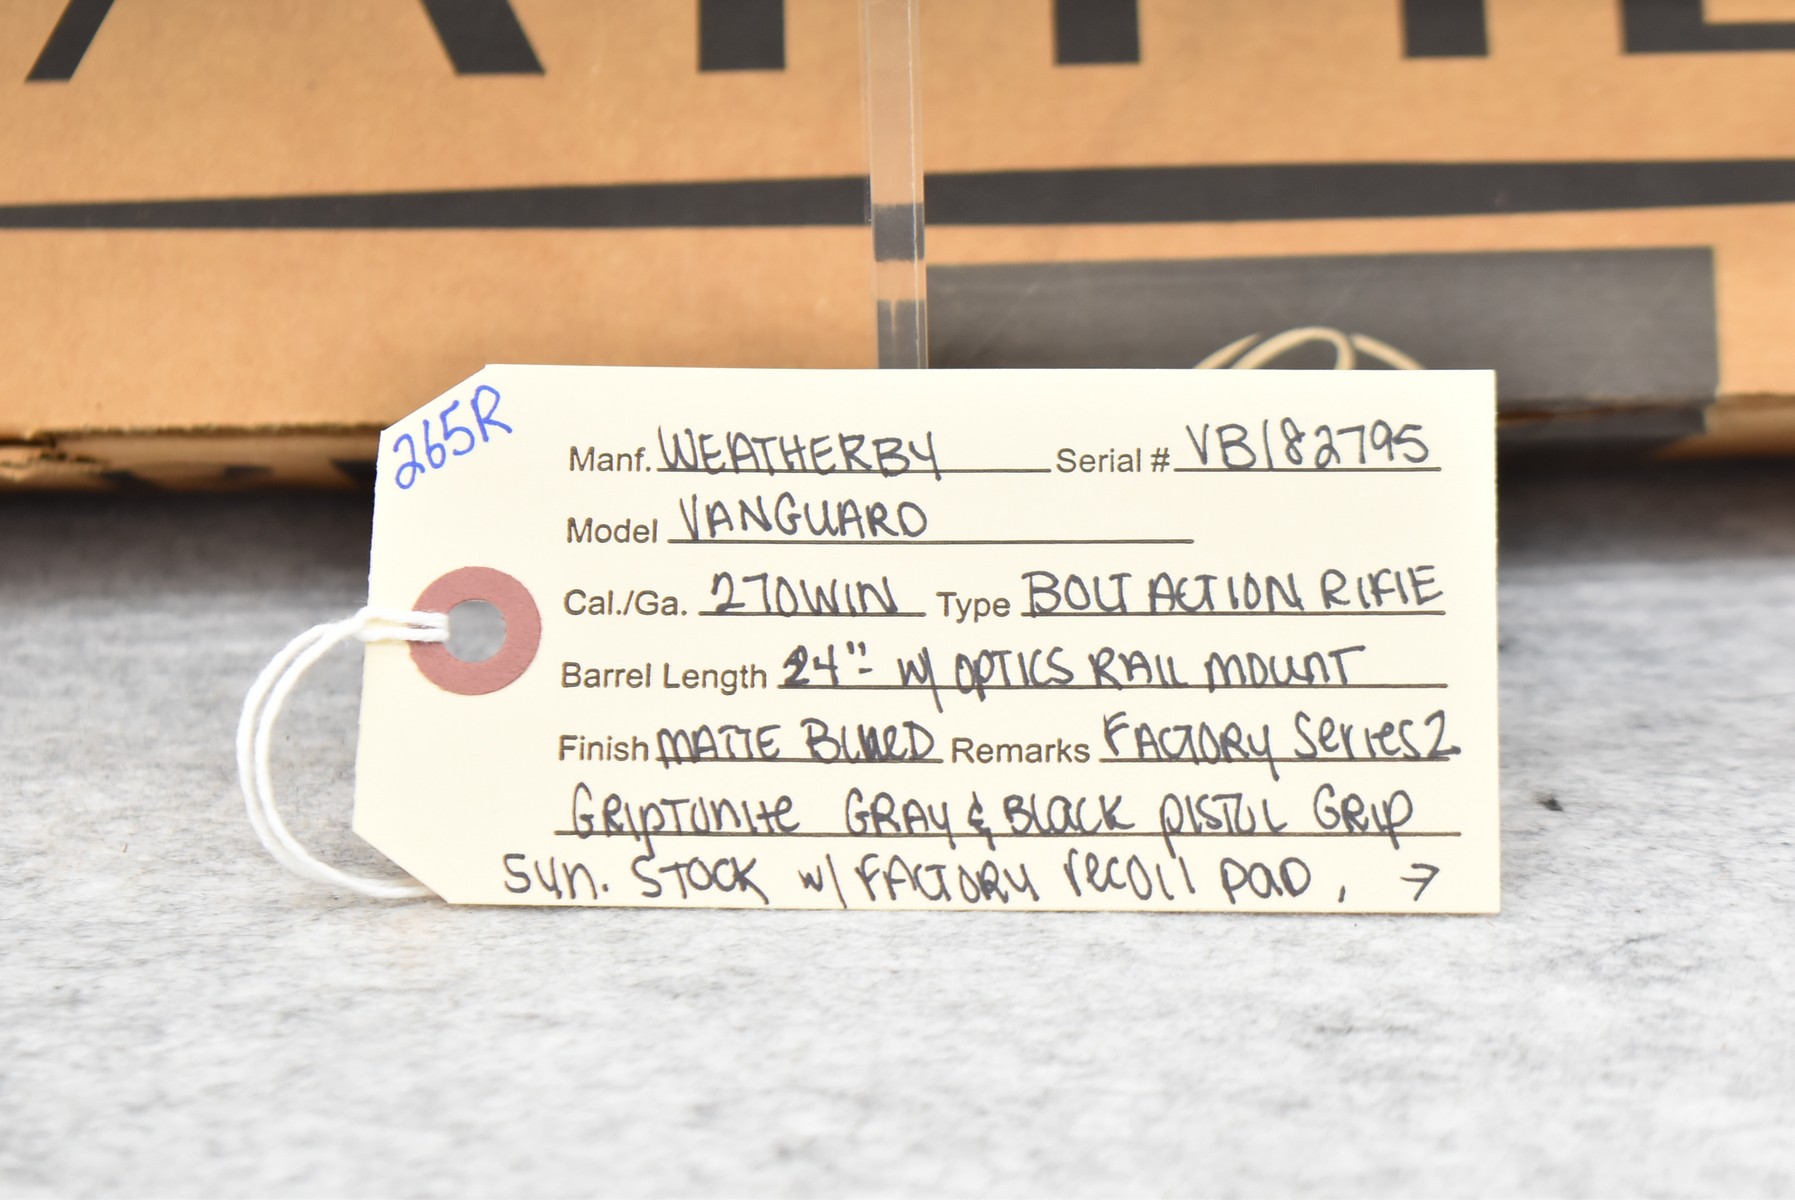 265R
Manf. WEATHERBY Serial # VB182795
Model VANGUARD
Cal./Ga. 270WIN Type BOLT ACTION RIFLE
Barrel Length 24"- W/ OPTICS RAIL MOUNT
Finish MATTE BLUED Remarks FACTORY Series 2
GRIPTONITE GRAY & BLACK PISTOL GRIP
Syn. STOCK W/ FACTORY recoil pad, →